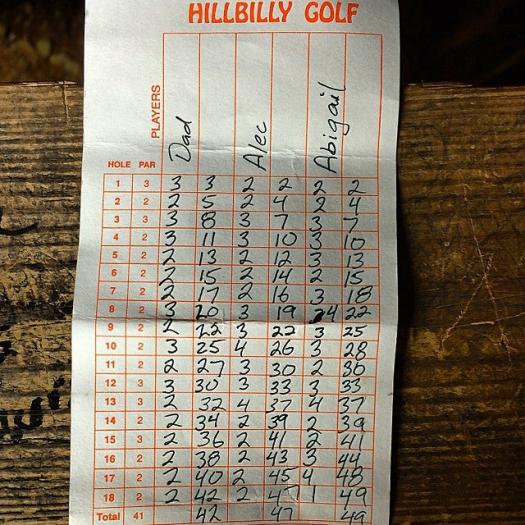 HILLBILLY GOLF
PLAYERS Dad Alec Abigail
HOLE PAR
1 3 3 3 2 2 2 2
2 2 2 5 2 4 2 4
3 3 3 8 3 7 3 7
4 2 3 11 3 10 3 10
5 2 2 13 2 12 3 13
6 2 2 15 2 14 2 15
7 2 2 17 2 16 3 18
8 2 3 20 3 19 4 22
9 2 2 22 3 22 3 25
10 2 3 25 4 26 3 28
11 2 2 27 3 30 2 30
12 3 3 30 3 33 3 33
13 2 2 32 4 37 4 37
14 2 2 34 2 39 2 39
15 3 2 36 2 41 2 41
16 2 2 38 2 43 3 44
17 2 2 40 2 45 4 48
18 2 2 42 2 47 1 49
Total 41 42 47 49